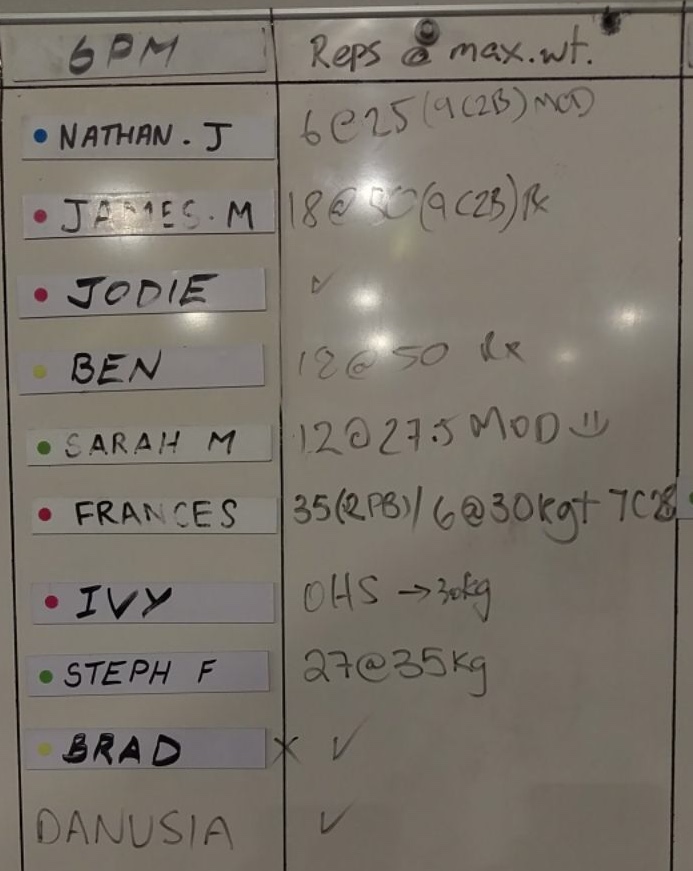 6PM Reps @ max.wt.
NATHAN. J 6@25(9C2B) MOD
JAMES. M 18@50(9C2B) Rx
JODIE ✓
BEN 12@50 Rx
SARAH M 12@27.5 MOD
FRANCES 35(RPB)/6@30kg+7C2B
IVY OHS →30kg
STEPH F 27@35kg
BRAD x ✓
DANUSIA ✓